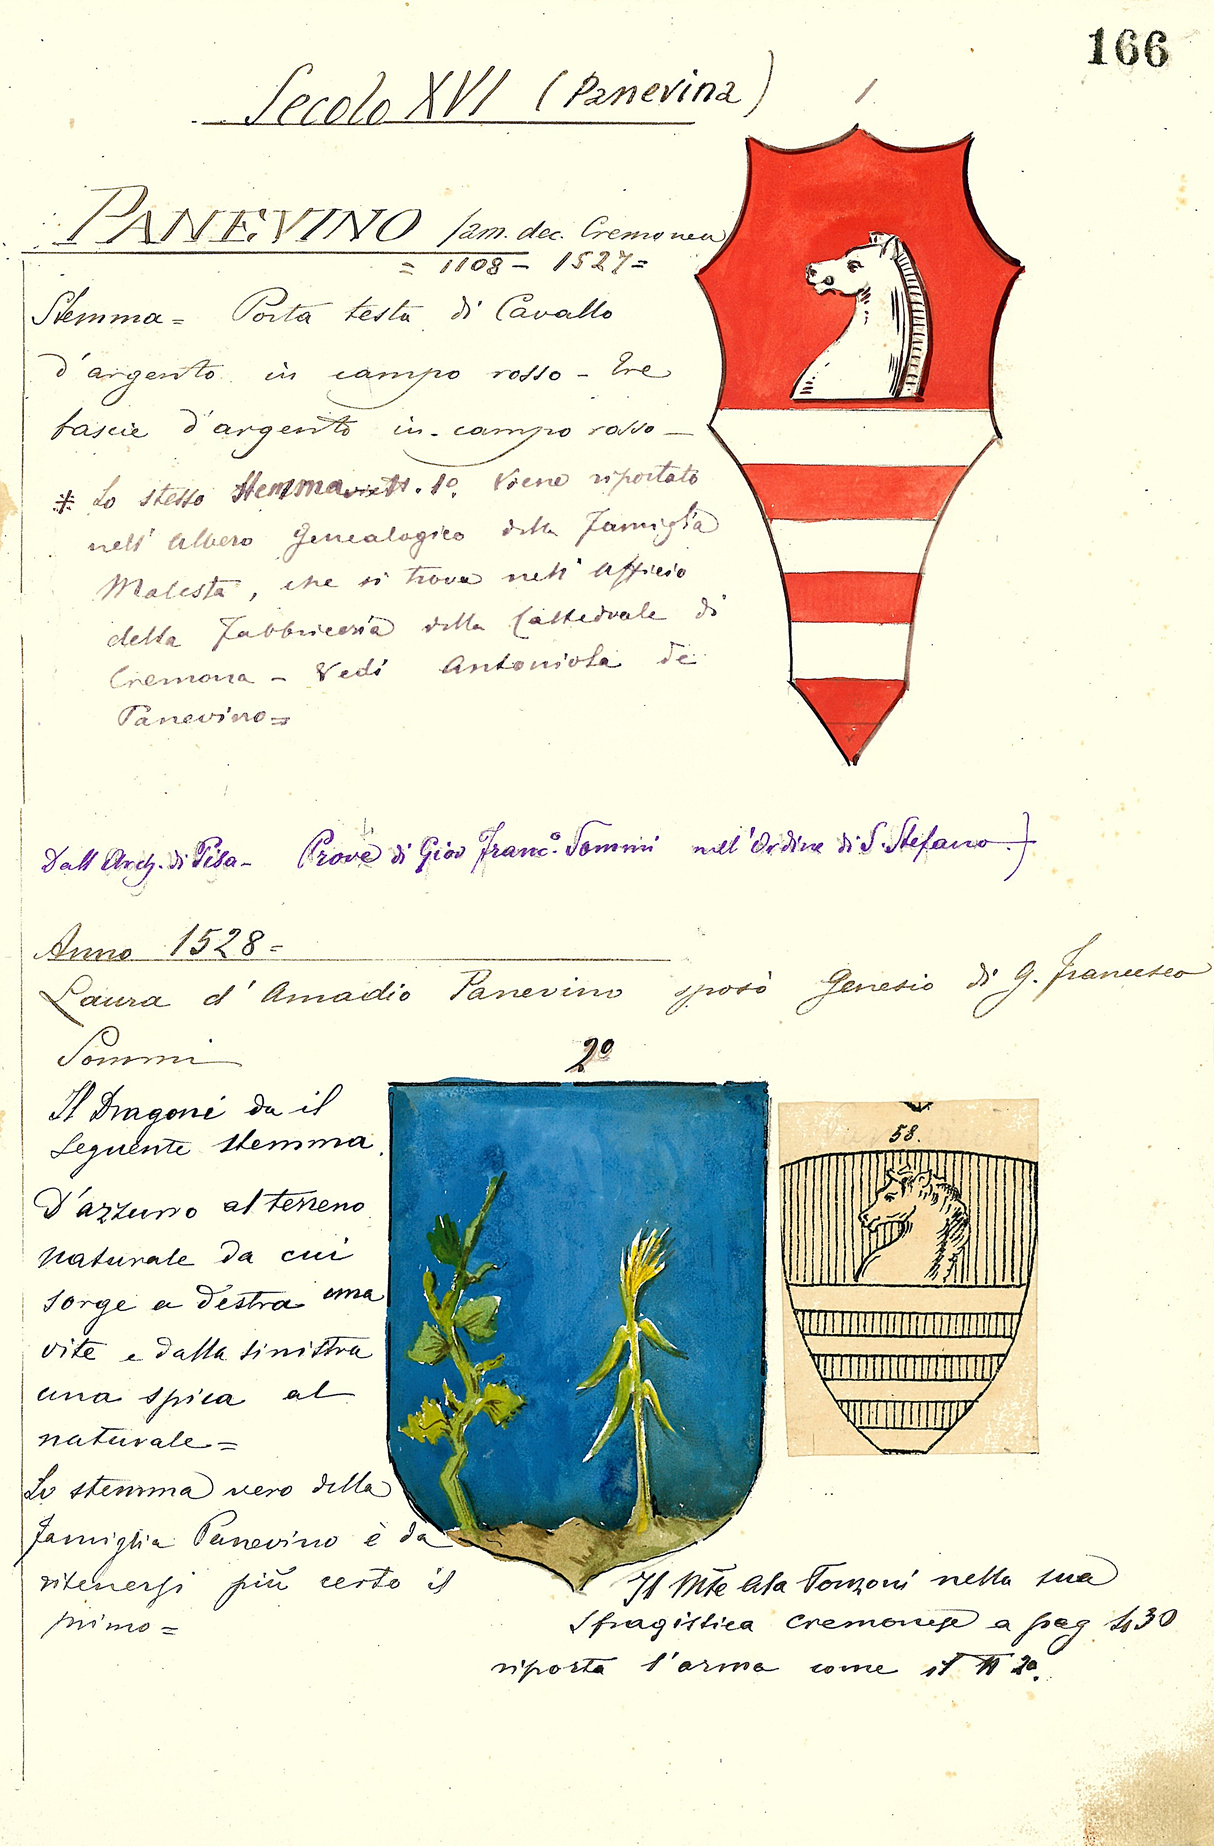 166
Secolo XVI (Panevina)
1
PANEVINO fam. dec. Cremonen
= 1108 - 1527 =
Stemma = Porta testa di Cavallo
d'argento in campo rosso - Tre
fascie d'argento in campo rosso -
* Lo stesso Stemma N. 1º. Viene riportato
nell' Albero Genealogico della Famiglia
Malesta, che si trova nell' Afficio
della Fabbriceria della Cattedrale di
Cremona - Vedi Antoniola de
Panevino =
Dall Arch. di Pisa - Prove di Giov Franc.º Sommi nell'Ordine di S. Stefano -)
Anno 1528 =
Laura d' Amadio Panevino sposò Genesio di G. Francesco
Sommi
2º
Il Dragoni da il
seguente stemma.
58.
D'azzurro al terreno
naturale da cui
sorge a destra una
vite e dalla sinistra
una spica al
naturale =
Lo stemma vero della
famiglia Panevino è da
ritenersi più certo il
primo =
Il Mse Ala Ponzoni nella sua
Sfragistica Cremonese a pag 430
riporta l'arma come il N 2º.